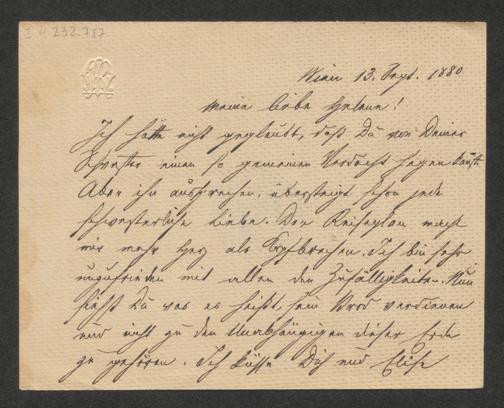 I.N.232.757
Wien 13. Sept. 1880
Meine liebe Helene!
Ich hätte nicht geglaubt, daß Du von Deiner
Schwester einen so gemeinen Verdacht hegen kannst.
Aber ihn aussprechen, übersteigt schon jede
schwesterliche Liebe. Der Reiseplan macht
mir mehr Herz als Kopfbrechen. Ich bin sehr
unzufrieden mit allen den Zufälligkeiten. Nun
siehst Du was es heißt, sein Brod verdienen
und nicht zu den Unabhängigen dieser Erde
zu gehören. Ich küsse Dich und Elise